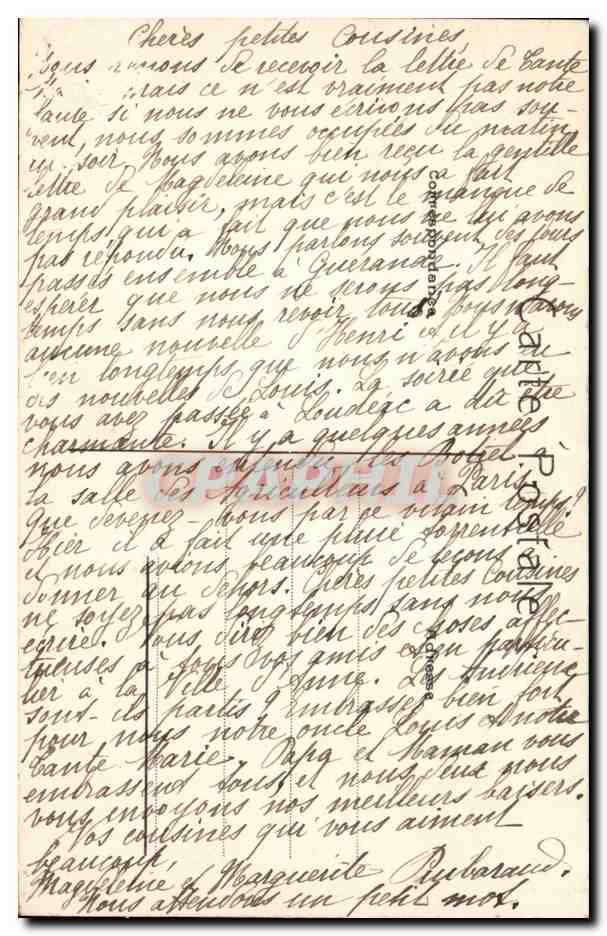 Chères petites Cousines,
Nous venons de recevoir la lettre de Tante
mais ce n'est vraiment pas notre
faute si nous ne vous écrivons pas sou-
vent, nous sommes occupées du matin
au soir. Nous avons bien reçu la gentille
lettre de Magdeleine qui nous a fait
grand plaisir, mais c'est le manque de
temps qui a fait que nous ne lui avons
pas répondu. Nous parlons souvent des jours
passés ensemble à Guérande. Il faut
espérer que nous ne serons pas long-
temps sans nous revoir tous. Nous n'avons
aucune nouvelle d'Henri et il y a
bien longtemps que nous n'avons eu
des nouvelles de Louis. La soirée que
vous avez passée à Loudéac a dû être
charmante. Il y a quelques années
nous avons entendu les Botrel à
la salle des Agriculteurs à Paris.
Que devenez-vous par ce vilain temps?
Hier il a fait une pluie torrentielle
et nous avions beaucoup de leçons à
donner au dehors. Chères petites Cousines
ne soyez pas longtemps sans nous
écrire. Vous direz bien des choses affec-
tueuses à tous vos amis et en particu-
lier à la Ville d'Anne. Les
sont-ils partis? Embrassez bien fort
pour nous notre oncle Louis & notre
Tante Marie. Papa et Maman vous
embrassent tous, et nous deux nous
vous envoyons nos meilleurs baisers.
Vos cousines qui vous aiment
beaucoup,
Magdeleine et Marguerite
Nous attendons un petit mot.
Carte Postale
Correspondance
Adresse
CPAPHIL